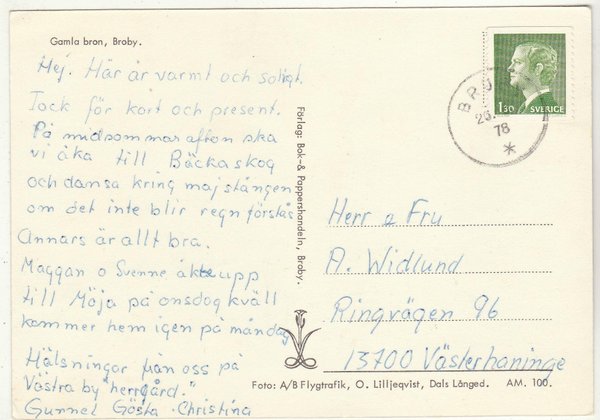 Gamla bron, Broby.
Hej. Här är varmt och soligt.
Tack för kort och present.
På midsommarafton ska
vi åka till Bäckaskog
och dansa kring majstången
om det inte blir regn förstås
Annars är allt bra.
Maggan o Svenne åkte upp
till Möja på onsdag kväll
kommer hem igen på måndag
Hälsningar från oss på
Västra by "herrgård."
Gunnel Gösta Christina
Förlag: Bok- & Pappershandeln, Broby.
1.30 SVERIGE
78
Herr o Fru
A. Widlund
Ringvägen 96
13700 Västerhaninge
Foto: A/B Flygtrafik, O. Lilljeqvist, Dals Långed. AM. 100.